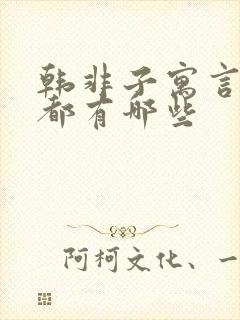 韩非子寓言
都有哪些
阿柯文化、一